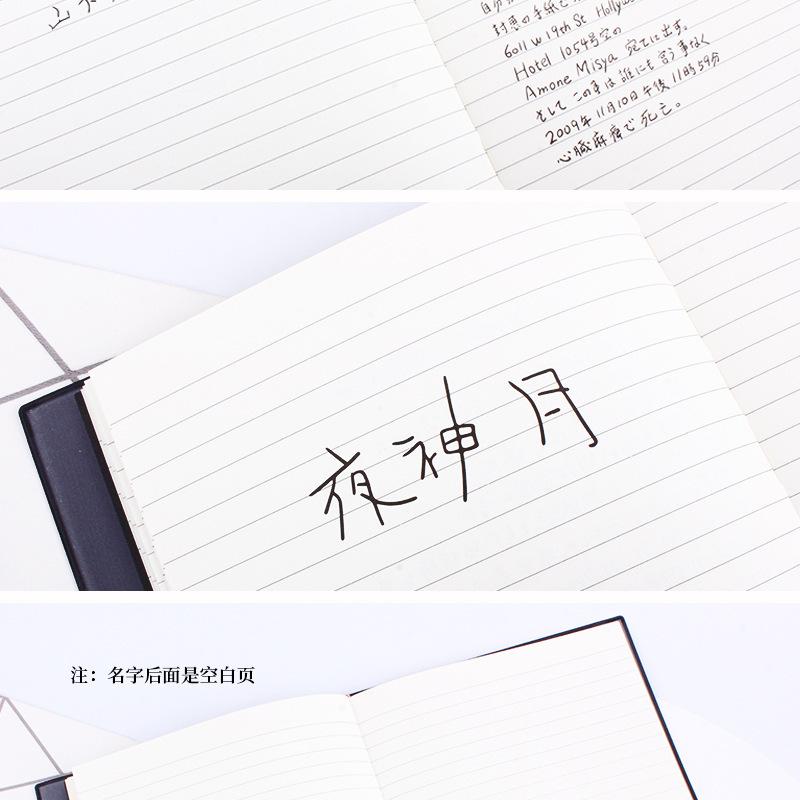 封惠の手紙で
6011 w 19th St Hollyw
Hotel 1054号室の
Amone Misya 宛てに出す。
そして この事は誰にも言う事なく
2009年11月10日午後11時59分
心臓麻痺で死亡。
夜神月
注：名字后面是空白页